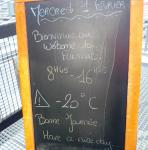 Mercredi 1 février
Bienvenue au
Welcome to
8H45 - 16H45
⚠ -20°C
Bonne Journée
Have a nice day...